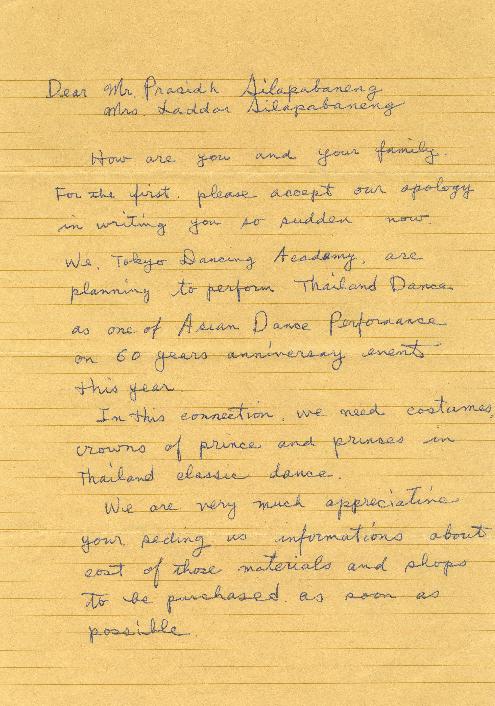 Dear Mr. Prasidh Silapabaneng
Mrs. Laddar Silapabaneng
How are you and your family.
For the first. please accept our apology
in writing you so sudden now.
We, Tokyo Dancing Academy, are
planning to perform Thailand Dance
as one of Asian Dance Performance
on 60 years anniversary event
this year.
In this connection, we need costumes,
crowns of prince and princes in
Thailand classic dance.
We are very much appreciative
your seding us informations about
cost of those materials and shops
to be purchased as soon as
possible.